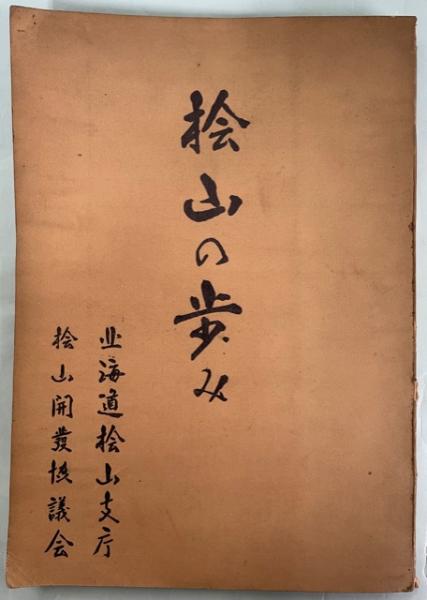 桧山の歩み
北海道桧山支庁
桧山開發協議会